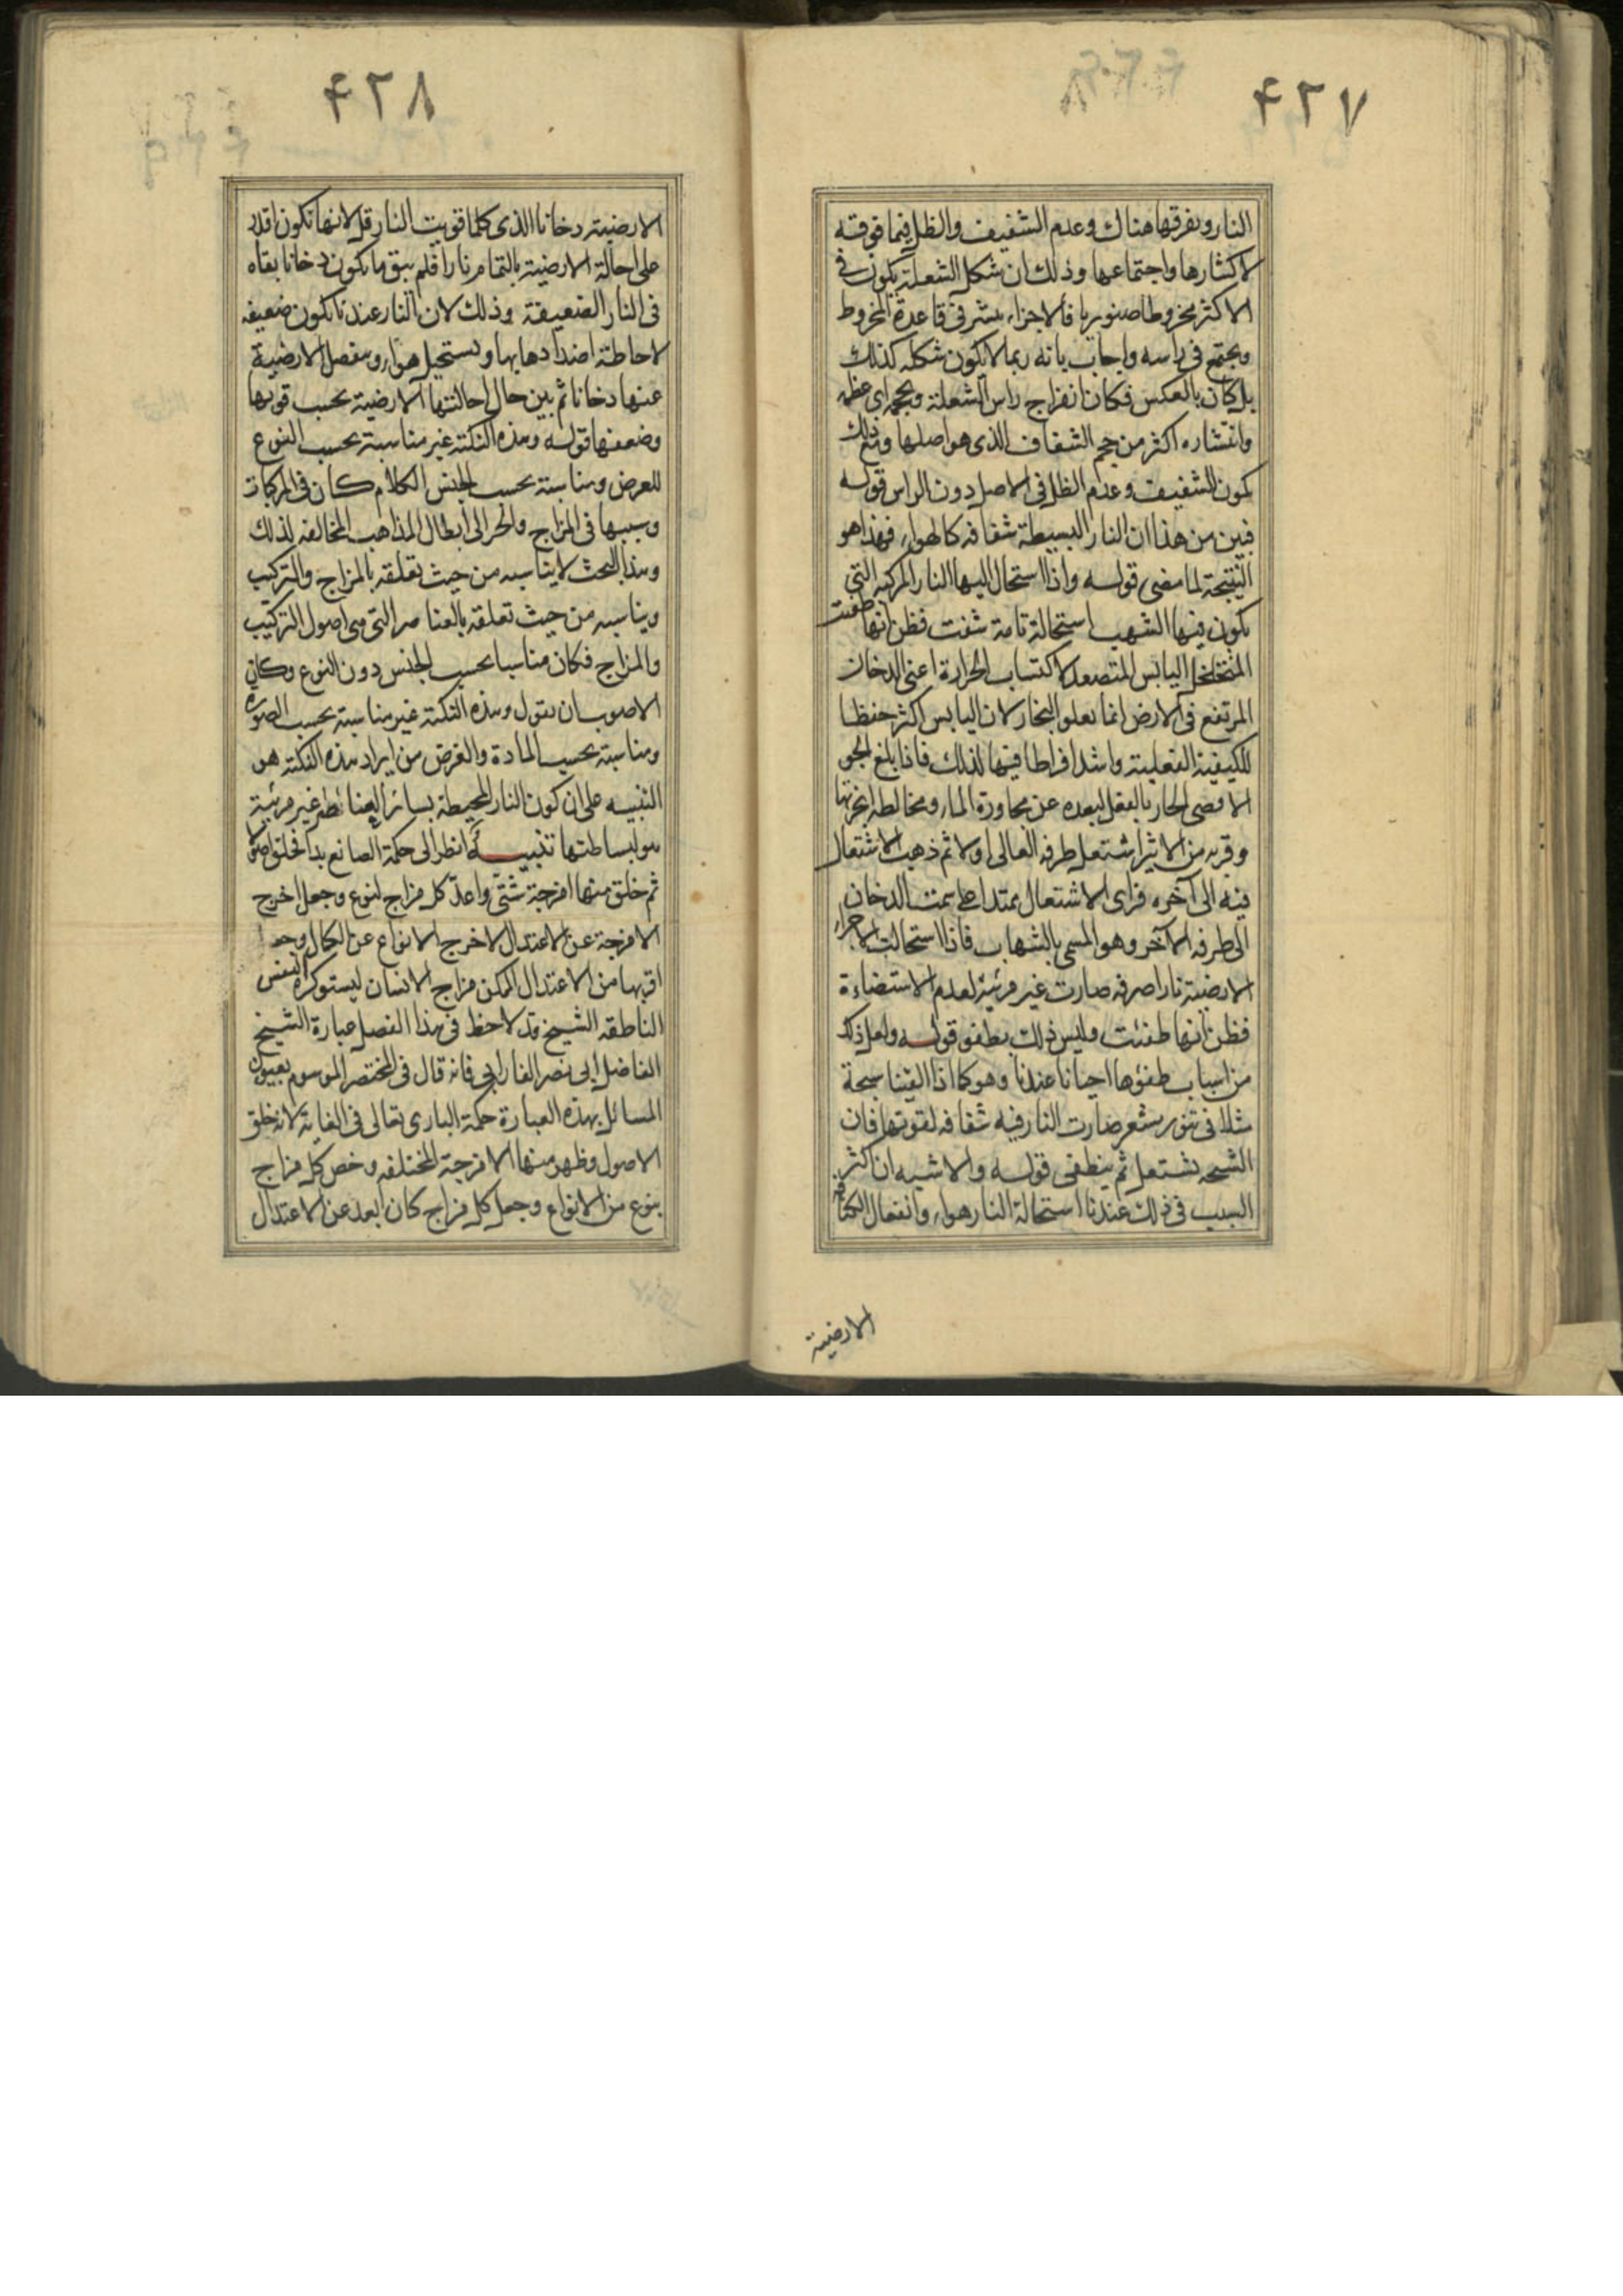 ۴۲۷
النار وتفرقها هناك وعدم الشفيف والظل فيما فوقه
لاكثارها واجتماعها وذلك ان شكل الشعلة يكون في
الاكثر مخروطا صنوبريا فالاجزاء ينتشر في قاعدة المخروط
ويجتمع في راسه واجاب بانه ربما لا يكون شكله كذلك
بل كان بالعكس فكان انفراج راس الشعلة وحجمه اى عظمه
وانتشاره اكثر من حجم الشفاف الذى هو اصلها ومع ذلك
يكون الشفيف وعدم الظل في الاصل دون الراس قوله
فبين من هذا ان النار البسيطة شفافه كالهواء فهذا هو
النتيجة لما مضى قوله واذا استحال اليها النار المركبه التى
يكون فيها الشهب استحالة تامة شفت فظن انها طفئت
المتخلخل اليابس المتصعد لاكتساب الحرارة اعنى الدخان
المرتفع في الارض انما يعلو البخار لان اليابس اكثر حفظا
للكيفية الفعلية واشد افراطا فيها لذلك فاذا بلغ الجو
الاقصى الحار بالفعل لبعده عن مجاورة الماء ومخالطه ابخرتها
وقربه من الاثير اشتعل طرفه العالى اولا ثم ذهب الاشتعال
فيه الى آخره فراى الاشتعال ممتدا على سمت الدخان
الى طرفه الآخر وهو المسمى بالشهاب فاذا استحالت الاجزاء
الارضية نارا صرفه صارت غير مرئية لعدم الاستضاءة
فظن انها طفئت وليس ذلك بطفو قوله ولعل ذلك
من اسباب طفوها احيانا عندنا وهو كما اذا القينا سبحة
مثلا في تنور مسعر صارت النار فيه شفافه لقوتها فان
الشحه تشتعل ثم ينطفى قوله والاشبه ان اكثر
السبب في ذلك عندنا استحالة النار هواء وانفعال الكثافه
الارضية
۴۲۸
الارضية دخانا الذى كلما قويت النار قل لانها تكون اقدر
على احالة الارضية بالتمام نارا فلم يبق ما يكون دخانا بقاه
في النار الضعيفة وذلك لان النار عندنا تكون ضعيفه
لاحاطة اضدادها بها ويستحيل هواء وينفصل الارضية
عنها دخانا ثم بين حال احالتها الارضية بحسب قوتها
وضعفها قوله وهذه النكتة غير مناسبة بحسب النوع
للغرض ومناسبة بحسب الجنس الكلام كان في المركبات
وسببها في المزاج وانجر الى ابطال المذاهب المخالفه لذلك
وهذا البحث لا يناسبه من حيث تعلقه بالمزاج والتركيب
ويناسبه من حيث تعلقه بالعناصر التى هى اصول التركيب
والمزاج فكان مناسبا بحسب الجنس دون النوع وكان
الاصوب ان يقول وهذه النكتة غير مناسبة بحسب الصورة
ومناسبة بحسب المادة والغرض من ايراد هذه النكته هو
التنبيه على ان كون النار المحيطة بسائر العناصر غير مرئية
هو لبساطتها تنبيه انظر الى حكمة الصانع بدا فخلق اصولا
ثم خلق منها امزجة شتى واعد كل مزاج لنوع وجعل اخرج
الامزجة عن الاعتدال لاخرج الانواع عن الكمال وجعل
اقربها من الاعتدال الممكن مزاج الانسان ليستوكره النفس
الناطقه الشيخ قد لاحظ في هذا الفصل عبارة الشيخ
الفاضل ابى نصر الفارابى فانه قال في المختصر الموسوم بعيون
المسائل بهذه العبارة حكمة البارى تعالى في الغاية لانه خلق
الاصول وظهر منها الامزجة المختلفه وخص كل مزاج
بنوع من الانواع وجعل كل مزاج كان ابعد عن الاعتدال